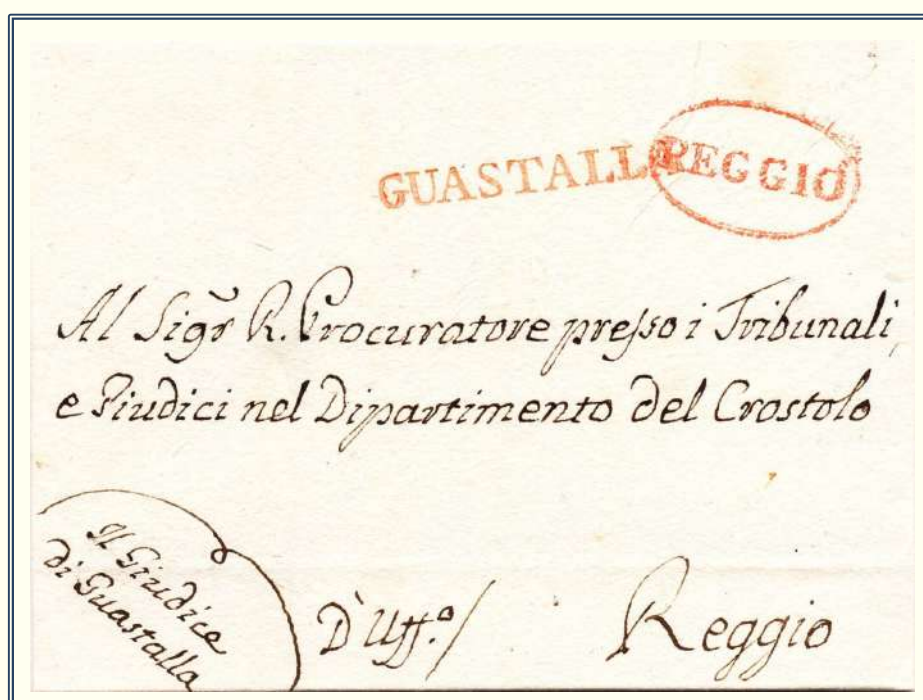 GUASTALLA REGGIO
Al Sigr R. Procuratore presso i Tribunali,
e Giudici nel Dipartimento del Crostolo
Il Giudice
di Guastalla
D'Uff.º/ Reggio